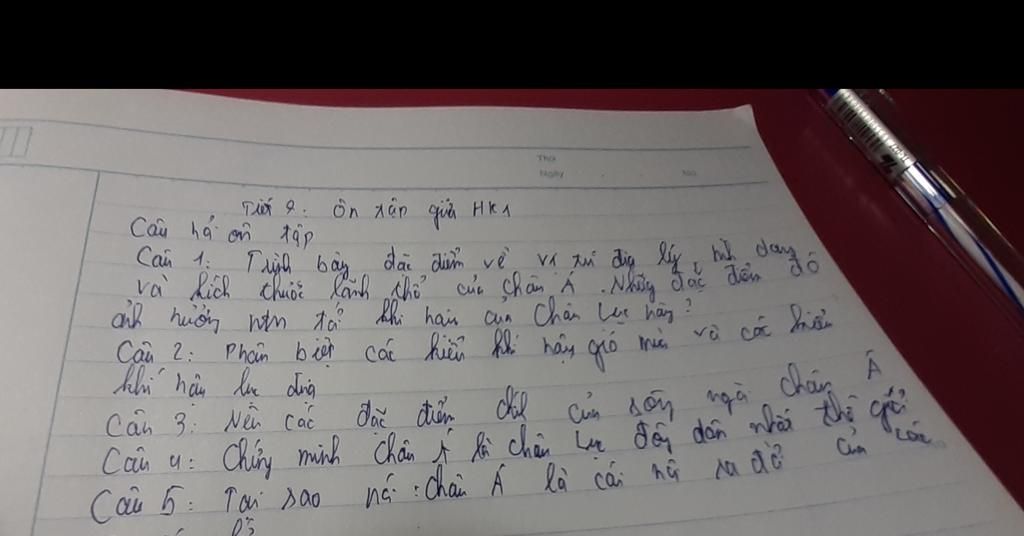 Thứ
Ngày No
Tiết 9: ôn tập giữa HK1
Câu hỏi ôn tập
Câu 1: Trình bày đặc điểm về vị trí địa lý, hình dạng
và kích thước lãnh thổ của châu Á. Những đặc điểm đó
ảnh hưởng ntn tới khí hậu của Châu Lục này?
Câu 2: Phân biệt các kiểu khí hậu gió mùa và các kiểu
khí hậu lục địa
Câu 3: Nêu các đặc điểm của sông ngòi châu Á
Câu 4: Chứng minh Châu Á là châu lục đông dân nhất thế giới
Câu 5: Tại sao nói: châu Á là cái nôi ra đời của các